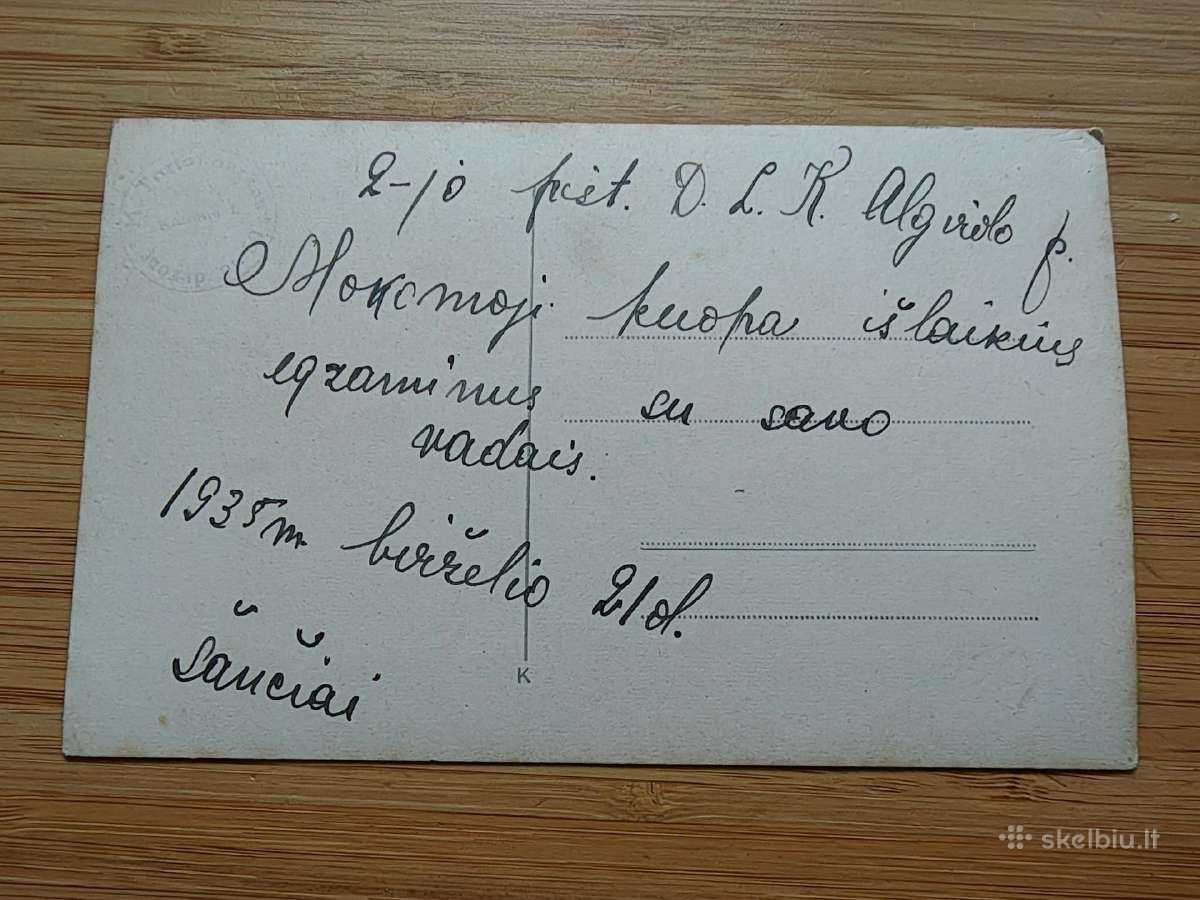 2-jo pėst. D. L. K. Algirdo p.
Mokomoji kuopa išlaikius
egzaminus su savo
vadais.
1935 m birželio 21 d.
Šančiai
K
skelbiu.lt